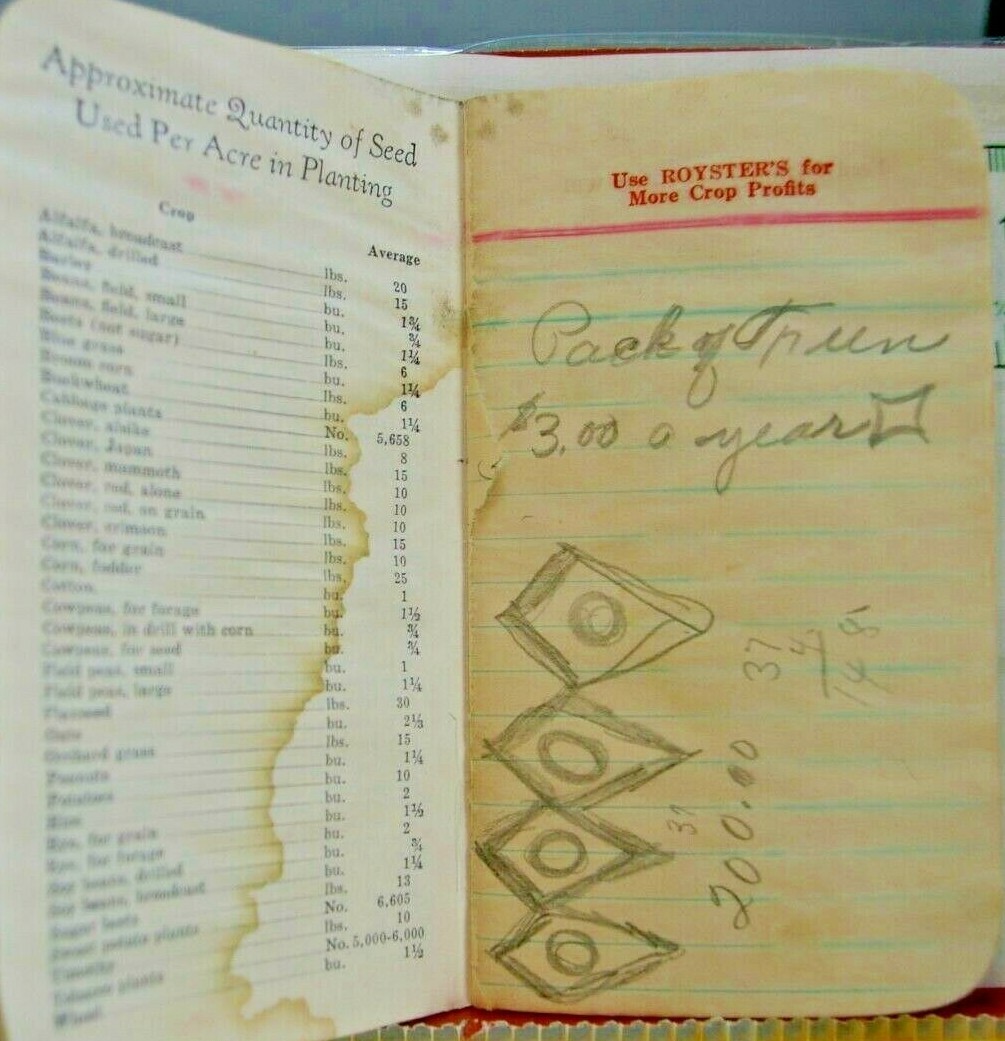 Approximate Quantity of Seed
Used Per Acre in Planting
Crop Average
Alfalfa, broadcast lbs. 20
Alfalfa, drilled lbs. 15
Barley bu. 1¾
Beans, field, small bu. ¾
Beans, field, large bu. 1¼
Beets (not sugar) lbs. 6
Blue grass bu. 1¼
Broom corn lbs. 6
Buckwheat bu. 1¼
Cabbage plants No. 5,658
Clover, alsike lbs. 8
Clover, Japan lbs. 15
Clover, mammoth lbs. 10
Clover, red, alone lbs. 10
Clover, red, on grain lbs. 10
Clover, crimson lbs. 15
Corn, for grain lbs. 10
Corn, fodder lbs. 25
Cotton bu. 1
Cowpeas, for forage bu. 1½
Cowpeas, in drill with corn bu. ¾
Cowpeas, for seed bu. ¾
Field peas, small bu. 1
Field peas, large bu. 1¼
Flaxseed lbs. 30
Oats bu. 2⅓
Orchard grass lbs. 15
Peanuts bu. 1¼
Potatoes bu. 10
Rice bu. 2
Rye, for grain bu. 1½
Rye, for forage bu. 2
Soy beans, drilled bu. ¾
Soy beans, broadcast bu. 1¼
Sugar beets lbs. 13
Sweet potato plants No. 6,605
Timothy lbs. 10
Tobacco plants No. 5,000-6,000
Wheat bu. 1½
Use ROYSTER'S for
More Crop Profits
Pack of
$3.00 a year
37
4
148
37
200.00